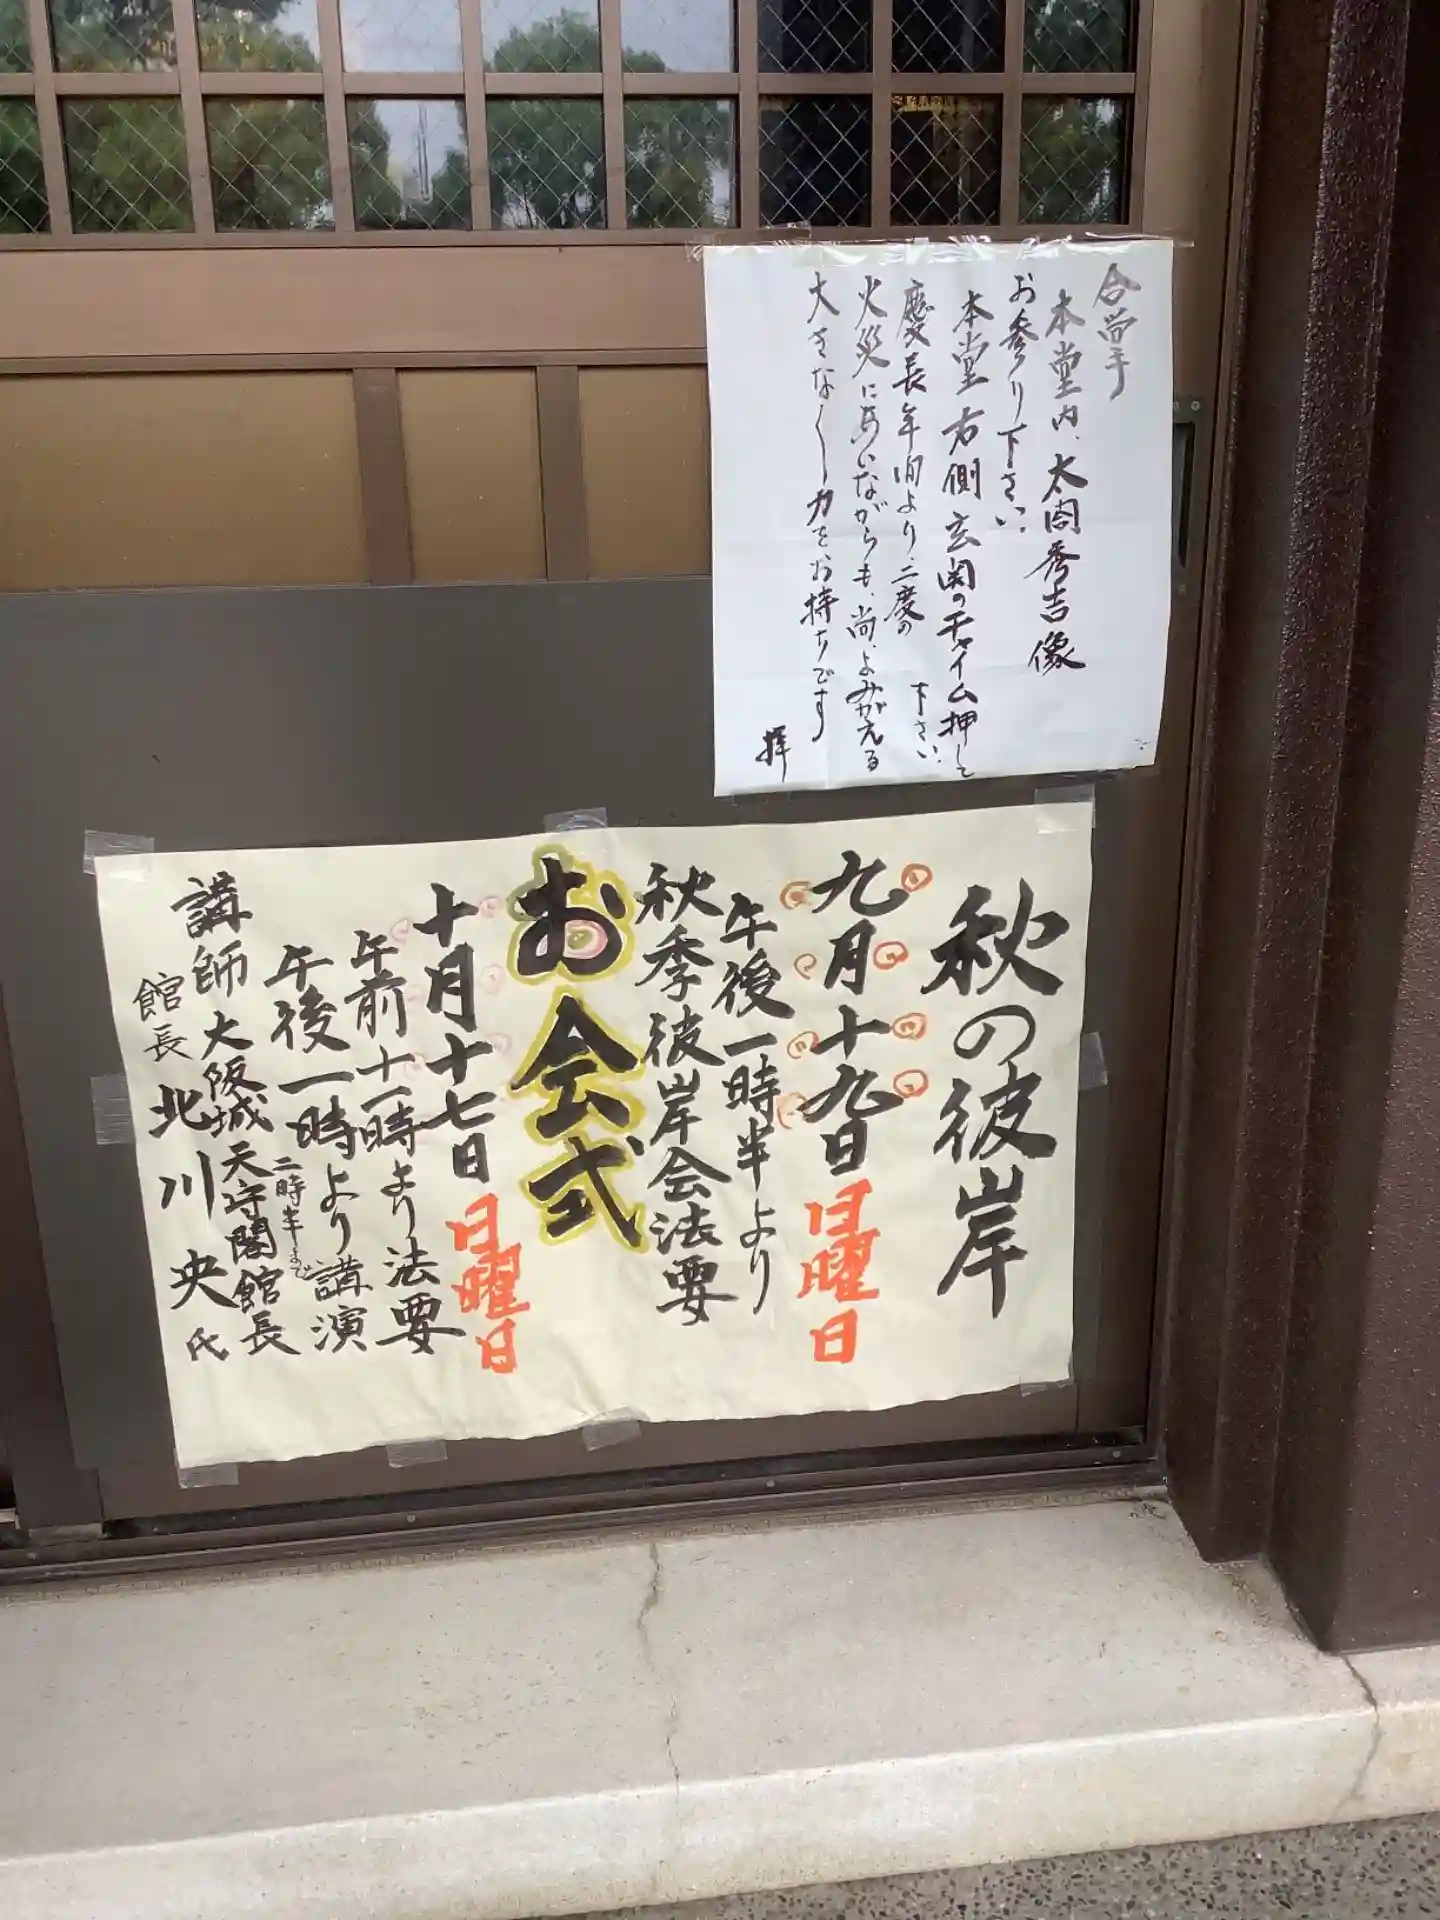 合掌
本堂内、太閤秀吉像
お参り下さい。
本堂右側玄関のチャイム押して
下さい。
慶長年間より、二度の
火災にあいながらも、尚、よみがえる
大きな力をお持ちです
拝
秋の彼岸
九月十九日日曜日
午後一時半より
秋季彼岸会法要
お会式
十月十七日日曜日
午前十一時より法要
午後一時より講演
二時半まで
講師 大阪城天守閣館長
館長 北川 央氏